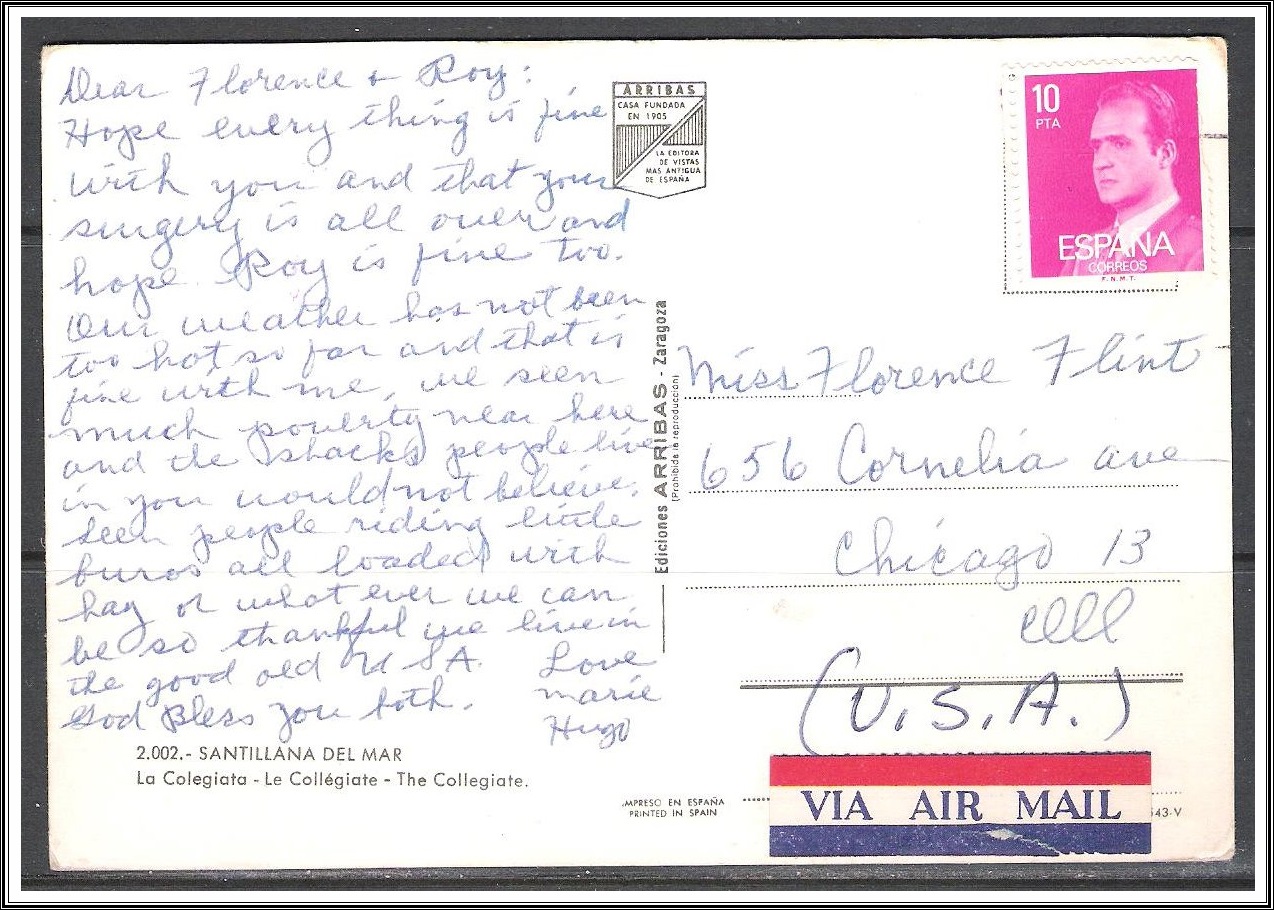 Dear Florence & Roy:
Hope every thing is fine
with you and that your
surgery is all over and
hope Roy is fine too.
Our weather has not been
too hot so far and that is
fine with me, we seen
much poverty near here
and the shacks people live
in you would not believe.
seen people riding little
buros all loaded with
hay or what ever we can
be so thankful we live in
the good old U S A.
God Bless you both.
Love
Marie
Hugo
2.002.- SANTILLANA DEL MAR
La Colegiata - Le Collégiate - The Collegiate.
ARRIBAS
CASA FUNDADA
EN 1905
LA EDITORA
DE VISTAS
MAS ANTIGUA
DE ESPAÑA
Ediciones ARRIBAS - Zaragoza
(Prohibida la reproducción)
IMPRESO EN ESPAÑA
PRINTED IN SPAIN
10
PTA
ESPAÑA
CORREOS
F.N.M.T.
Miss Florence Flint
656 Cornelia ave
Chicago 13
Ill
(U.S.A.)
VIA AIR MAIL
543-V